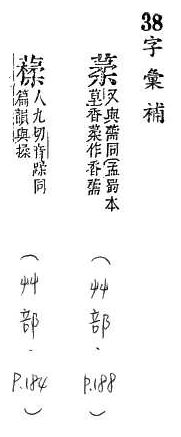 38 字彙補
葇 又與薷同孟蜀本
草香葇作香薷
(艸部．P.188)
人九切音蹂同
篇韻與
(艸部．P.184)